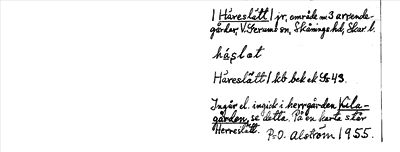 1 Häreslätt 1 jr, område m 3 arrende-
gårdar, V. Gerums sn, Skånings hd, Skar. l.
Häreslätt 1 kb bek ek Gs 43.
Ingår el. ingick i herrgården Kila-
gården, se detta. På en karta står
Herreslätt.
P.O. Alström 1955.